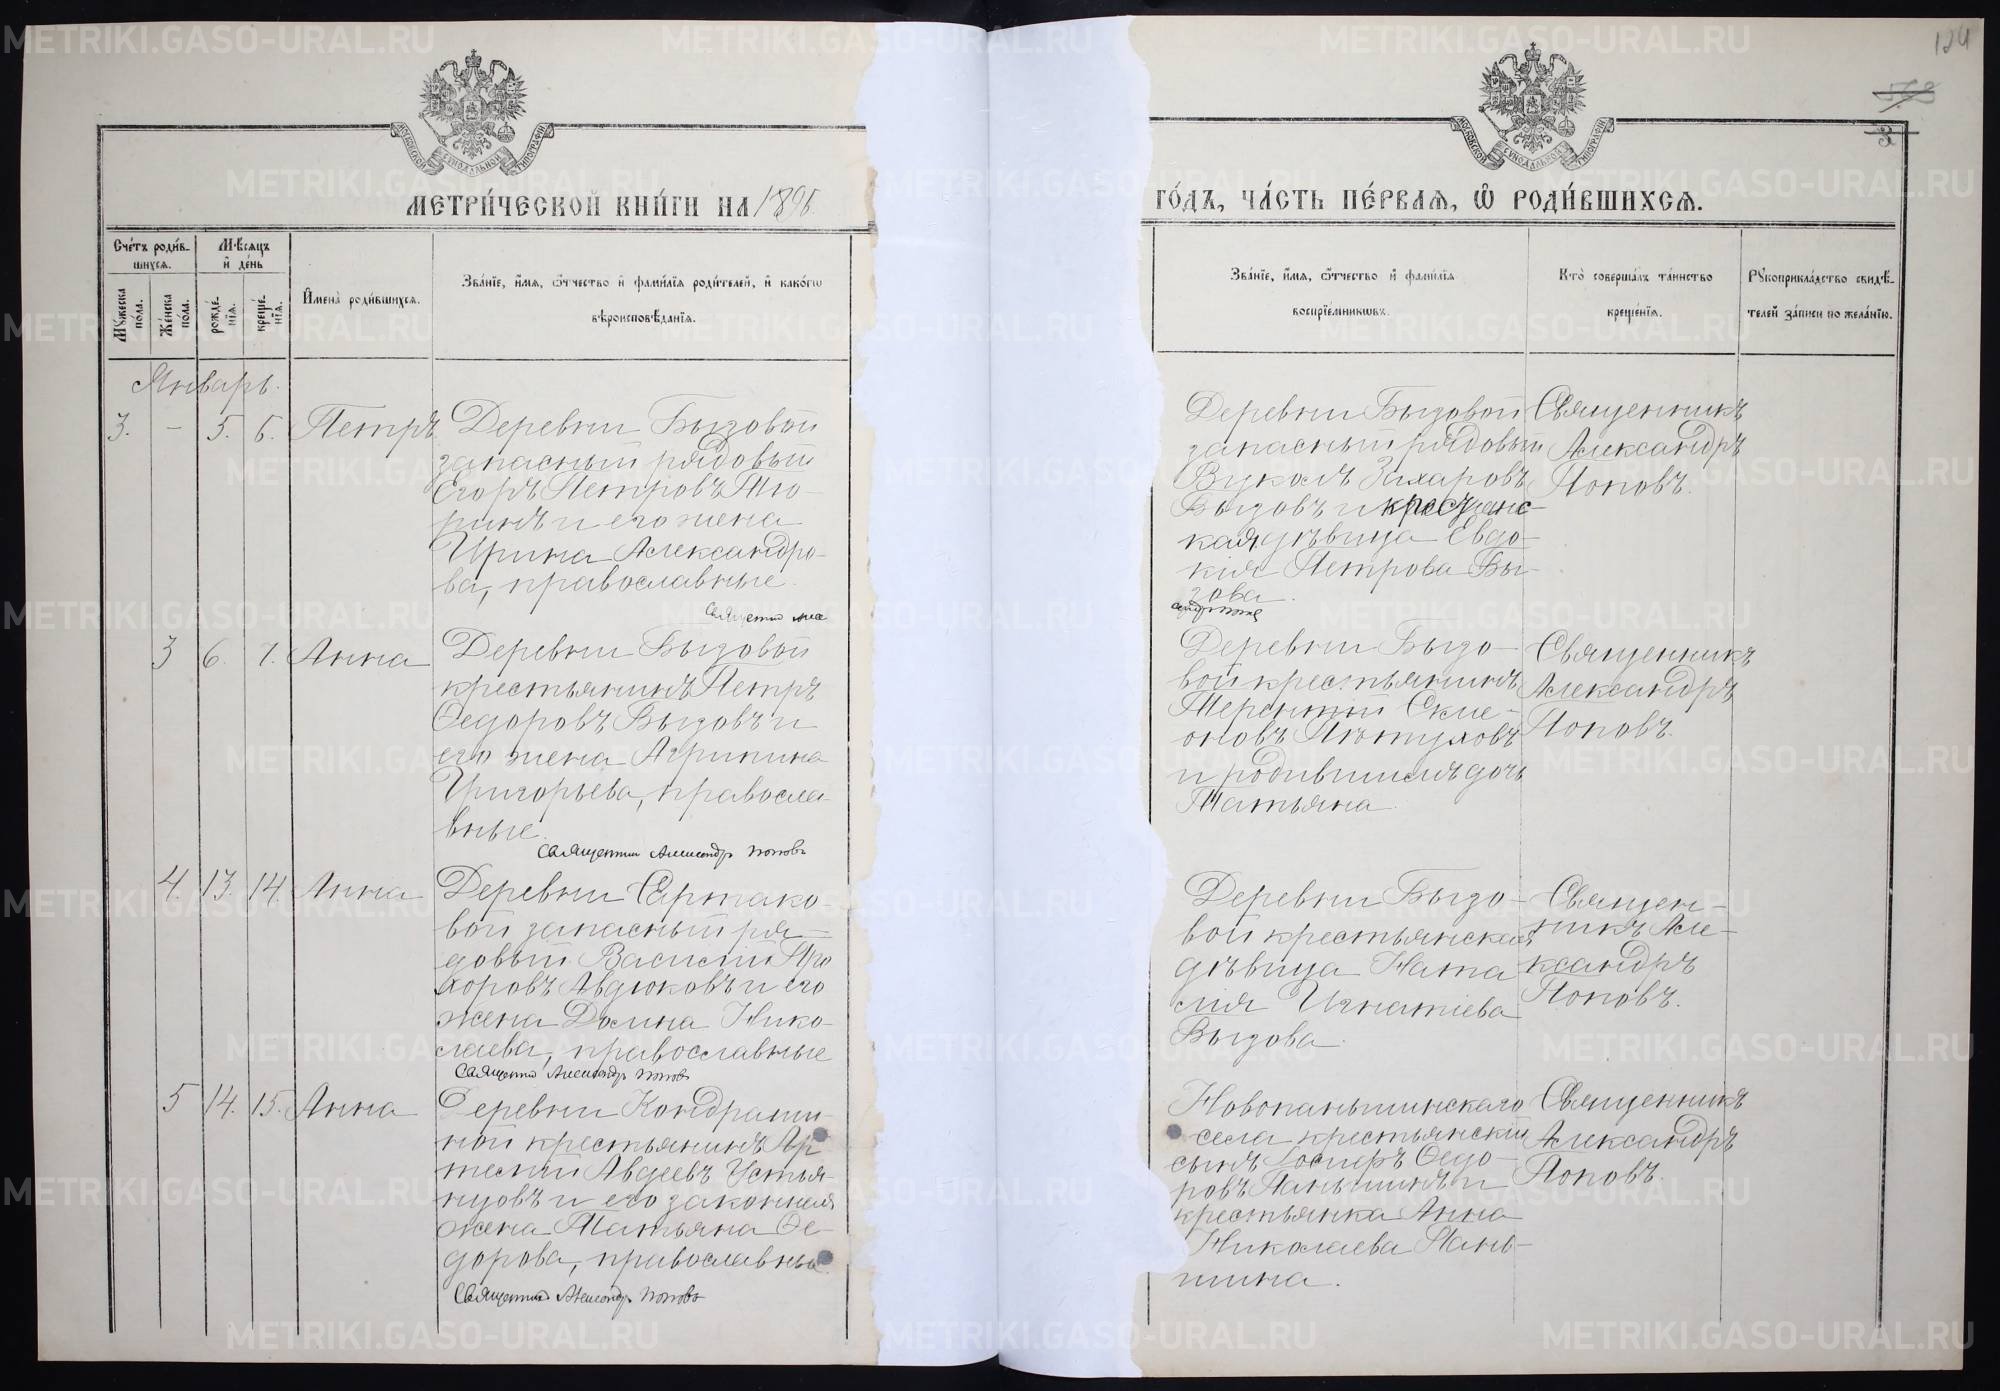 124
МОСКОВСКОЙ СѴНОДАЛЬНОЙ ТИПОГРАФІИ
МОСКОВСКОЙ СѴНОДАЛЬНОЙ ТИПОГРАФІИ
МЕТРИ́ЧЕСКОЙ КНИ́ГИ НА 1896.
ГО́ДЪ, ЧА́СТЬ ПЕ́РВАѦ, Ѡ҆ РОДИ́ВШИХСѦ.
Сче́тъ роди́в-
шихсѧ.
Мꙋ́жеска по́ла.
Же́нска по́ла.
Мѣ́сѧцъ
и҆ де́нь
рожде́-
нїѧ.
креще́-
нїѧ.
И҆мена̀ роди́вшихсѧ.
Зва́нїе, и҆́мѧ, ѻ҆́тчество и҆ фами́лїѧ роди́телей, и҆ како́гѡ
вѣроисповѣ́данїѧ.
Зва́нїе, и҆́мѧ, ѻ҆́тчество и҆ фами́лїѧ
воспрїе́мникѡвъ.
Кто̀ соверша́лъ та́инство
креще́нїѧ.
Рꙋкоприкла́дство свидѣ́-
телей за́писи по жела́нїю.
Январь.
3. - 5. 6. Петръ
Деревни Бызовой
запасный рядовый
Егоръ Петровъ Тю-
ринъ и его жена
Ирина Александро-
ва, православные.
Деревни Бызовой
запасный рядовый
Вуколъ Захаровъ
Бызовъ и крестьянс-
кая девица Евдо-
кия Петрова Бы-
зова.
Священникъ
Александръ
Поповъ.
3 6. 7. Анна
Деревни Бызовой
крестьянинъ Петръ
Ѳедоровъ Бызовъ и
его жена Агрипина
Григорьева, правосла-
вные.
Священник Александр Поповъ
Деревни Бызо-
вой крестьянинъ
Терентий
и родившихъ дочь
Татьяна.
Священникъ
Александръ
Поповъ.
4. 13. 14. Анна
Деревни
вой запасный ря-
довый Василий Про
хоровъ Авдюковъ и его
жена Домна Нико-
лаева, православные
Священник Александр Поповъ
Деревни Бызо-
вой крестьянская
девица Ната
лия Игнатiева
Бызова.
Священ-
никъ Але-
ксандръ
Поповъ.
5 14. 15. Анна
Деревни Кондраши-
ной крестьянинъ Ар
темий Авдеевъ Устья-
нцовъ и его законная
жена Татьяна Ѳе-
дорова, православные.
Священник Александр Поповъ
Новопаньшинскаго
села крестьянский
сынъ Ѳедо-
ровъ Паньшинъ и
крестьянка Анна
Николаева Пань-
шина.
Священникъ
Александръ
Поповъ.
METRIKI.GASO-URAL.RU